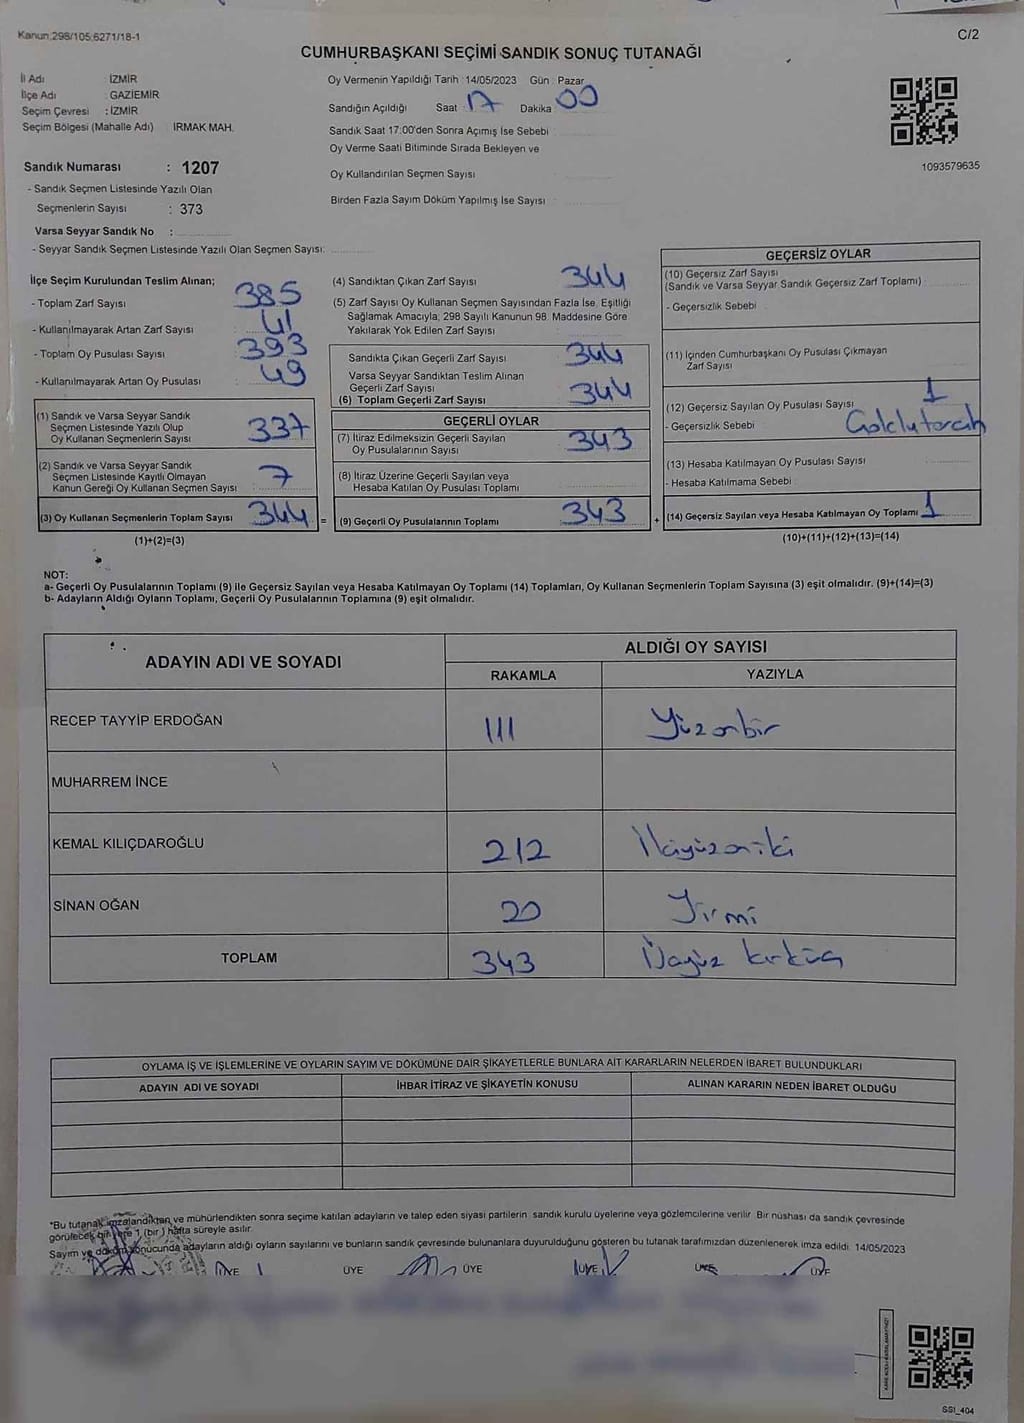 Kanun:298/105;6271/18-1
C/2
CUMHURBAŞKANI SEÇİMİ SANDIK SONUÇ TUTANAĞI
İl Adı : İZMİR
İlçe Adı : GAZİEMİR
Seçim Çevresi : İZMİR
Seçim Bölgesi (Mahalle Adı) IRMAK MAH.
Sandık Numarası : 1207
- Sandık Seçmen Listesinde Yazılı Olan
Seçmenlerin Sayısı : 373
Varsa Seyyar Sandık No :
- Seyyar Sandık Seçmen Listesinde Yazılı Olan Seçmen Sayısı:
Oy Vermenin Yapıldığı Tarih : 14/05/2023 Gün : Pazar
Sandığın Açıldığı Saat : 17 Dakika : 00
Sandık Saat 17:00'den Sonra Açılmış İse Sebebi
Oy Verme Saati Bitiminde Sırada Bekleyen ve
Oy Kullandırılan Seçmen Sayısı
Birden Fazla Sayım Döküm Yapılmış İse Sayısı
1093579635
İlçe Seçim Kurulundan Teslim Alınan;
- Toplam Zarf Sayısı 385
- Kullanılmayarak Artan Zarf Sayısı 41
- Toplam Oy Pusulası Sayısı 393
- Kullanılmayarak Artan Oy Pusulası 49
(1) Sandık ve Varsa Seyyar Sandık
Seçmen Listesinde Yazılı Olup
Oy Kullanan Seçmenlerin Sayısı 337
(2) Sandık ve Varsa Seyyar Sandık
Seçmen Listesinde Kayıtlı Olmayan
Kanun Gereği Oy Kullanan Seçmen Sayısı 7
(3) Oy Kullanan Seçmenlerin Toplam Sayısı 344 =
(1)+(2)=(3)
(4) Sandıktan Çıkan Zarf Sayısı 344
(5) Zarf Sayısı Oy Kullanan Seçmen Sayısından Fazla İse, Eşitliği
Sağlamak Amacıyla; 298 Sayılı Kanunun 98. Maddesine Göre
Yakılarak Yok Edilen Zarf Sayısı
Sandıkta Çıkan Geçerli Zarf Sayısı 344
Varsa Seyyar Sandıktan Teslim Alınan
Geçerli Zarf Sayısı
(6) Toplam Geçerli Zarf Sayısı 344
GEÇERLİ OYLAR
(7) İtiraz Edilmeksizin Geçerli Sayılan
Oy Pusulalarının Sayısı 343
(8) İtiraz Üzerine Geçerli Sayılan veya
Hesaba Katılan Oy Pusulası Toplamı
(9) Geçerli Oy Pusulalarının Toplamı 343 +
GEÇERSİZ OYLAR
(10) Geçersiz Zarf Sayısı
(Sandık ve Varsa Seyyar Sandık Geçersiz Zarf Toplamı) :
- Geçersizlik Sebebi
(11) İçinden Cumhurbaşkanı Oy Pusulası Çıkmayan
Zarf Sayısı
(12) Geçersiz Sayılan Oy Pusulası Sayısı 1
- Geçersizlik Sebebi
(13) Hesaba Katılmayan Oy Pusulası Sayısı
- Hesaba Katılmama Sebebi
(14) Geçersiz Sayılan veya Hesaba Katılmayan Oy Toplamı 1
(10)+(11)+(12)+(13)=(14)
NOT:
a- Geçerli Oy Pusulalarının Toplamı (9) ile Geçersiz Sayılan veya Hesaba Katılmayan Oy Toplamı (14) Toplamları, Oy Kullanan Seçmenlerin Toplam Sayısına (3) eşit olmalıdır. (9)+(14)=(3)
b- Adayların Aldığı Oyların Toplamı, Geçerli Oy Pusulalarının Toplamına (9) eşit olmalıdır.
ADAYIN ADI VE SOYADI
ALDIĞI OY SAYISI
RAKAMLA YAZIYLA
RECEP TAYYİP ERDOĞAN 111 Yüzonbir
MUHARREM İNCE
KEMAL KILIÇDAROĞLU 212 İkiyüzoniki
SİNAN OĞAN 20 Yirmi
TOPLAM 343 Üçyüz kırküç
OYLAMA İŞ VE İŞLEMLERİNE VE OYLARIN SAYIM VE DÖKÜMÜNE DAİR ŞİKAYETLERLE BUNLARA AİT KARARLARIN NELERDEN İBARET BULUNDUKLARI
ADAYIN ADI VE SOYADI İHBAR İTİRAZ VE ŞİKAYETİN KONUSU ALINAN KARARIN NEDEN İBARET OLDUĞU
*Bu tutanak imzalandıktan ve mühürlendikten sonra seçime katılan adayların ve talep eden siyasi partilerin sandık kurulu üyelerine veya gözlemcilerine verilir. Bir nüshası da sandık çevresinde
görülecek bir yere 1 (bir) hafta süreyle asılır.
Sayım ve döküm sonucunda adayların aldığı oyların sayılarını ve bunların sandık çevresinde bulunanlara duyurulduğunu gösteren bu tutanak tarafımızdan düzenlenerek imza edildi. 14/05/2023
ÜYE ÜYE ÜYE ÜYE ÜYE ÜYE
SSI_404